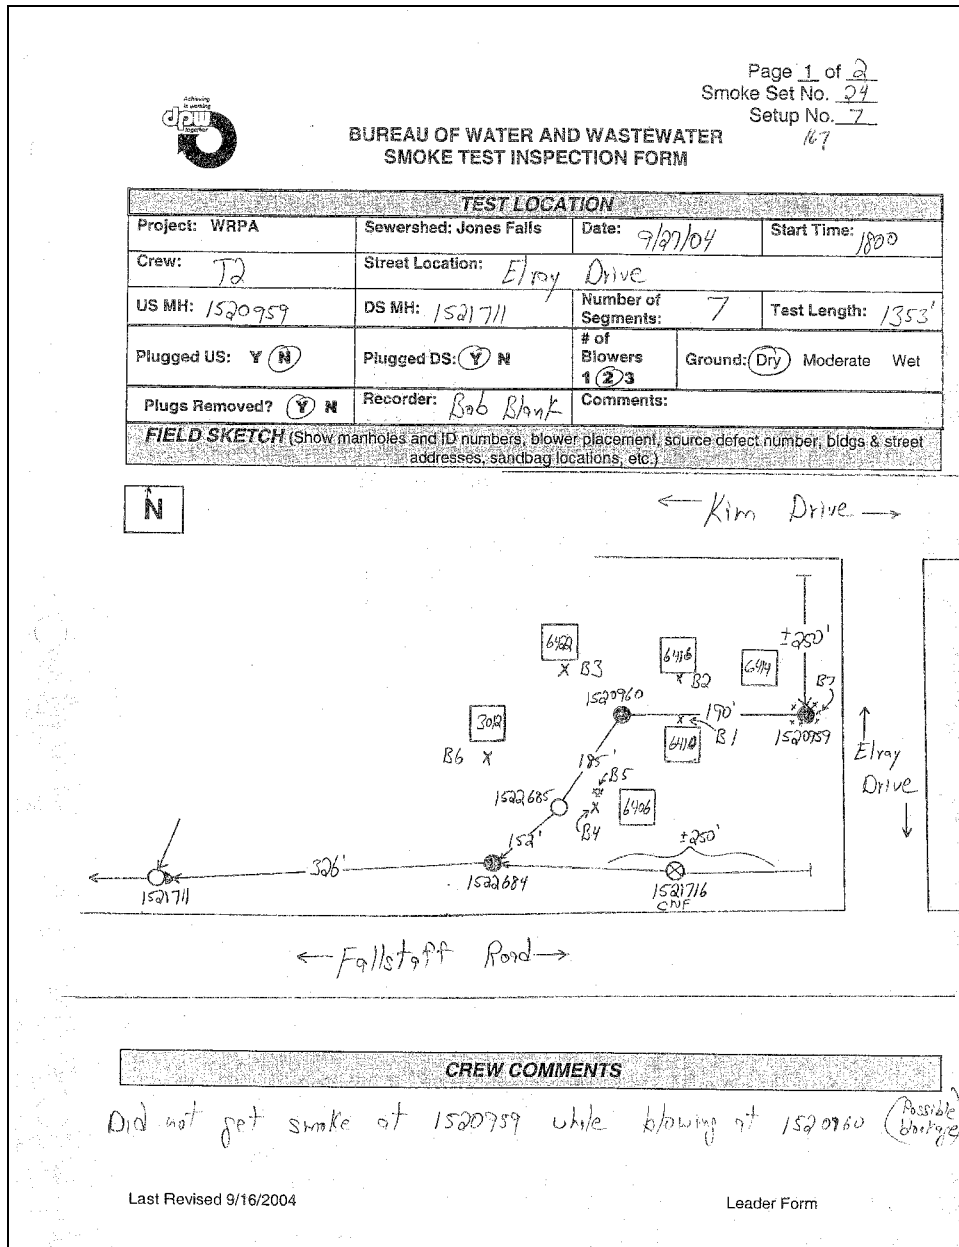 Page 1 of 2
Smoke Set No. 24
Setup No. 7
167
Achieving
is working
dpw
together
BUREAU OF WATER AND WASTEWATER
SMOKE TEST INSPECTION FORM
TEST LOCATION
Project: WRPA Sewershed: Jones Falls Date: 9/27/04 Start Time: 1800
Crew: T2 Street Location: Elray Drive
US MH: 1520959 DS MH: 1521711 Number of Segments: 7 Test Length: 1353'
Plugged US: Y N Plugged DS: Y N # of Blowers 1 2 3 Ground: Dry Moderate Wet
Plugs Removed? Y N Recorder: Bob Blank Comments:
FIELD SKETCH (Show manholes and ID numbers, blower placement, source defect number, bldgs & street
addresses, sandbag locations, etc.)
N
← Kim Drive →
±250'
6422
6416
6414
B3
B2
B7
1520960
190'
3012
6410
B1
1520959
B6
185'
Elray
Drive
B5
1522685
6406
B4
152'
±250'
326'
1521711
1522684
1521716
CNF
← Fallstaff Road →
CREW COMMENTS
Did not get smoke at 1520959 while blowing at 1520960 (Possible blockage)
Last Revised 9/16/2004 Leader Form